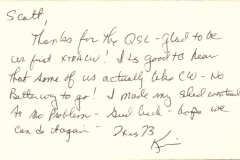 Scott,
Thanks for the QSL - glad to be
ur first XTRA CW! It's good to hear
that some of us actually like CW - No
Better way to go! I made my sked
So no problem - Good luck - hope we
can do it again - Thks 73